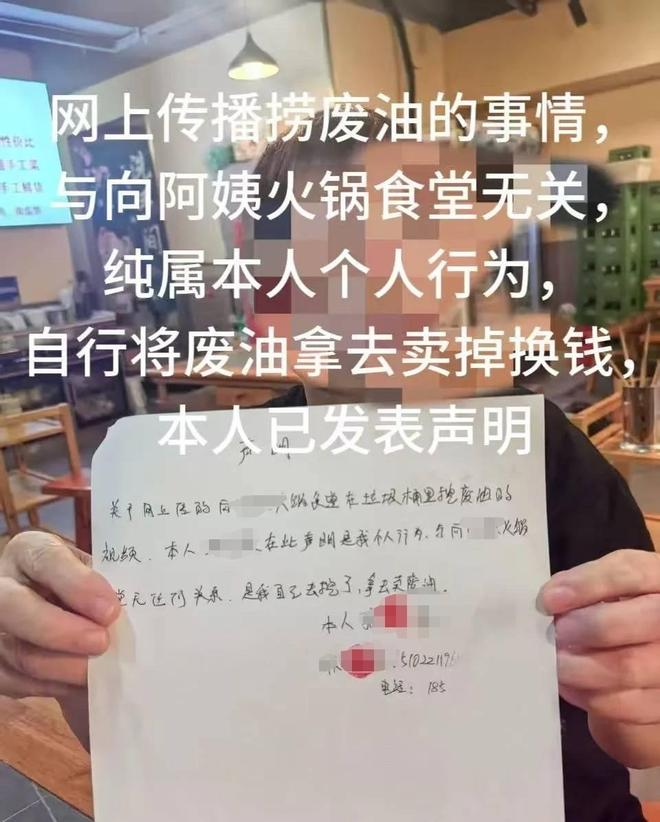 网上传播捞废油的事情，
与向阿姨火锅食堂无关，
纯属本人个人行为，
自行将废油拿去卖掉换钱，
本人已发表声明
性价比
手工
手工
声明
关于网上传的向 火锅食堂在垃圾桶里捞废油的
视频，本人 在此声明是我个人行为，与向 火锅
堂无任何关系，是我自己去挖了，拿去卖废油。
本人
510221196
电话：185